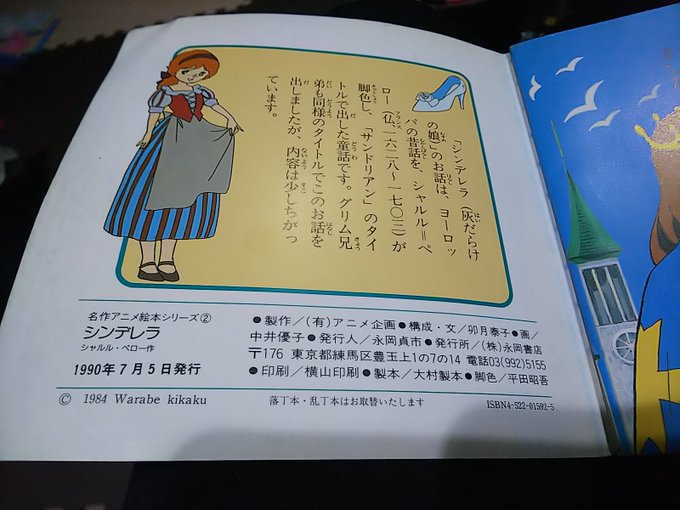 「シンデレラ(灰だらけ
の娘)」のお話は、ヨーロッ
パの昔話を、シャルル＝ペ
ロー(仏、一六二八〜一七〇三)が
脚色し、「サンドリアン」のタイ
トルで出した童話です。グリム兄
弟も同様のタイトルでこのお話を
出しましたが、内容は少しちがっ
ています。
名作アニメ絵本シリーズ②
シンデレラ
シャルル・ペロー作
1990年7月5日発行
●製作／(有)アニメ企画●構成・文／卯月泰子●画／
中井優子●発行人／永岡貞市●発行所／(株)永岡書店
〒176 東京都練馬区豊玉上1の7の14 電話03(992)5155
●印刷／横山印刷●製本／大村製本●脚色／平田昭吾
© 1984 Warabe kikaku
落丁本・乱丁本はお取替いたします
ISBN4-522-01592-5